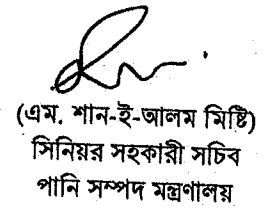 (এম. শান-ই-আলম মিষ্টি)
সিনিয়র সহকারী সচিব
পানি সম্পদ মন্ত্রণালয়